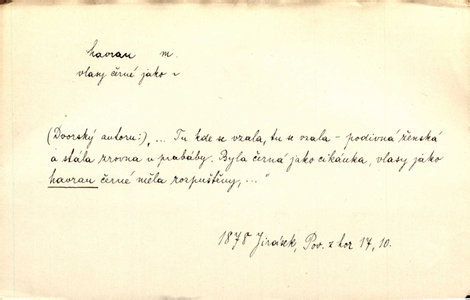 havran m.
vlasy černé jako ~
(Dvorský autoru:) „... Tu kde se vzala, tu se vzala – podivná ženská
a stála zrovna u prabáby. Byla černá jako cikánka, vlasy jako
havran černé měla rozpuštěny, ..."
1878 Jirásek, Pov. z hor 17, 10.